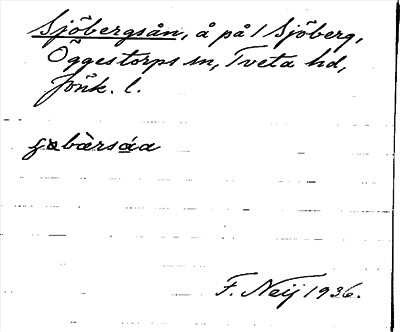 Sjöbergsån, å på 1 Sjöberg,
Öggestorps sn, Tveta hd,
Jönk. l.
F. Neij 1936.